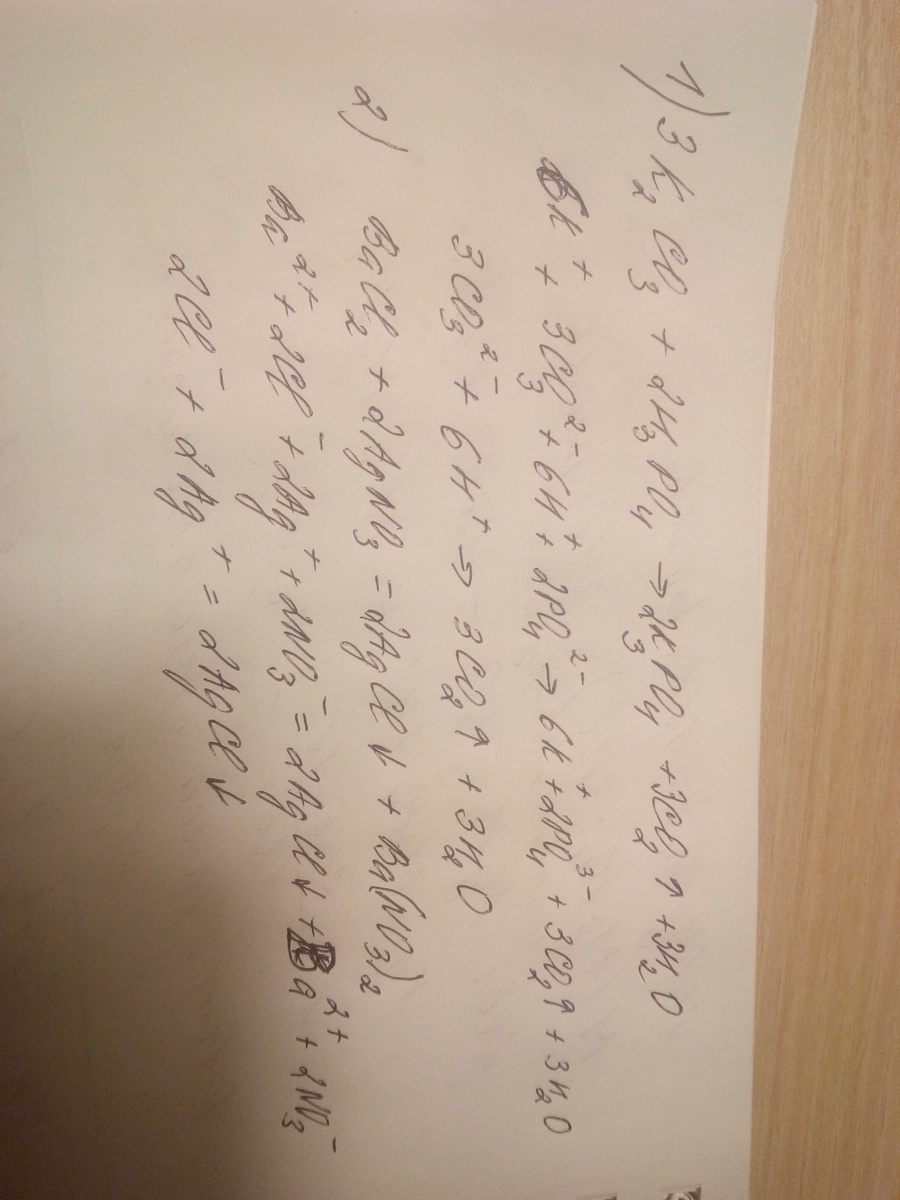 1) 3K₂CO₃ + 2H₃PO₄ → 2K₃PO₄ + 3CO₂↑ + 3H₂O
6K⁺ + 3CO₃²⁻ + 6H⁺ + 2PO₄²⁻ → 6K⁺ + 2PO₄³⁻ + 3CO₂↑ + 3H₂O
3CO₃²⁻ + 6H⁺ → 3CO₂↑ + 3H₂O
2) BaCl₂ + 2AgNO₃ = 2AgCl↓ + Ba(NO₃)₂
Ba²⁺ + 2Cl⁻ + 2Ag⁺ + 2NO₃⁻ = 2AgCl↓ + Ba²⁺ + 2NO₃⁻
2Cl⁻ + 2Ag⁺ = 2AgCl↓